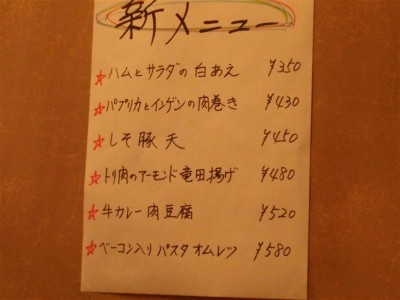 新メニュー
☆ハムとサラダの白あえ ¥350
☆パプリカとインゲンの肉巻き ¥430
☆しそ豚天 ¥450
☆トリ肉のアーモンド竜田揚げ ¥480
☆牛カレー肉豆腐 ¥520
☆ベーコン入りパスタオムレツ ¥580